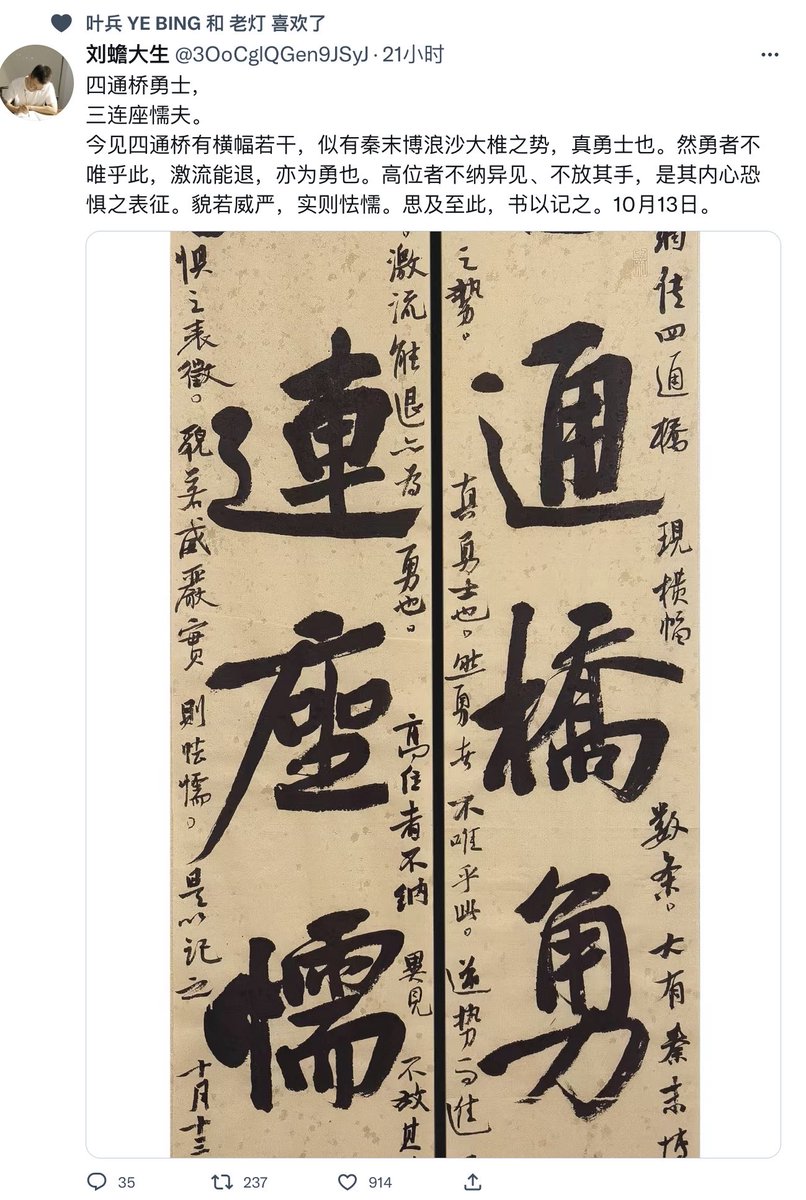 叶兵 YE BING 和 老灯 喜欢了
刘蟾大生 @3OoCglQGen9JSyJ · 21小时
四通桥勇士，
三连座懦夫。
今见四通桥有横幅若干，似有秦末博浪沙大椎之势，真勇士也。然勇者不
唯乎此，激流能退，亦为勇也。高位者不纳异见、不放其手，是其内心恐
惧之表征。貌若威严，实则怯懦。思及至此，书以记之。10月13日。
四通橋 現橫幅 数条。大有秦末博
通橋勇
之勢。真勇士也。然勇者不唯乎此。逆势而進
激流能退亦为勇也。高位者不纳異見不放其
連座懦
惧之表徵。貌若威嚴實則怯懦。是以記之 十月十三
35
237
914